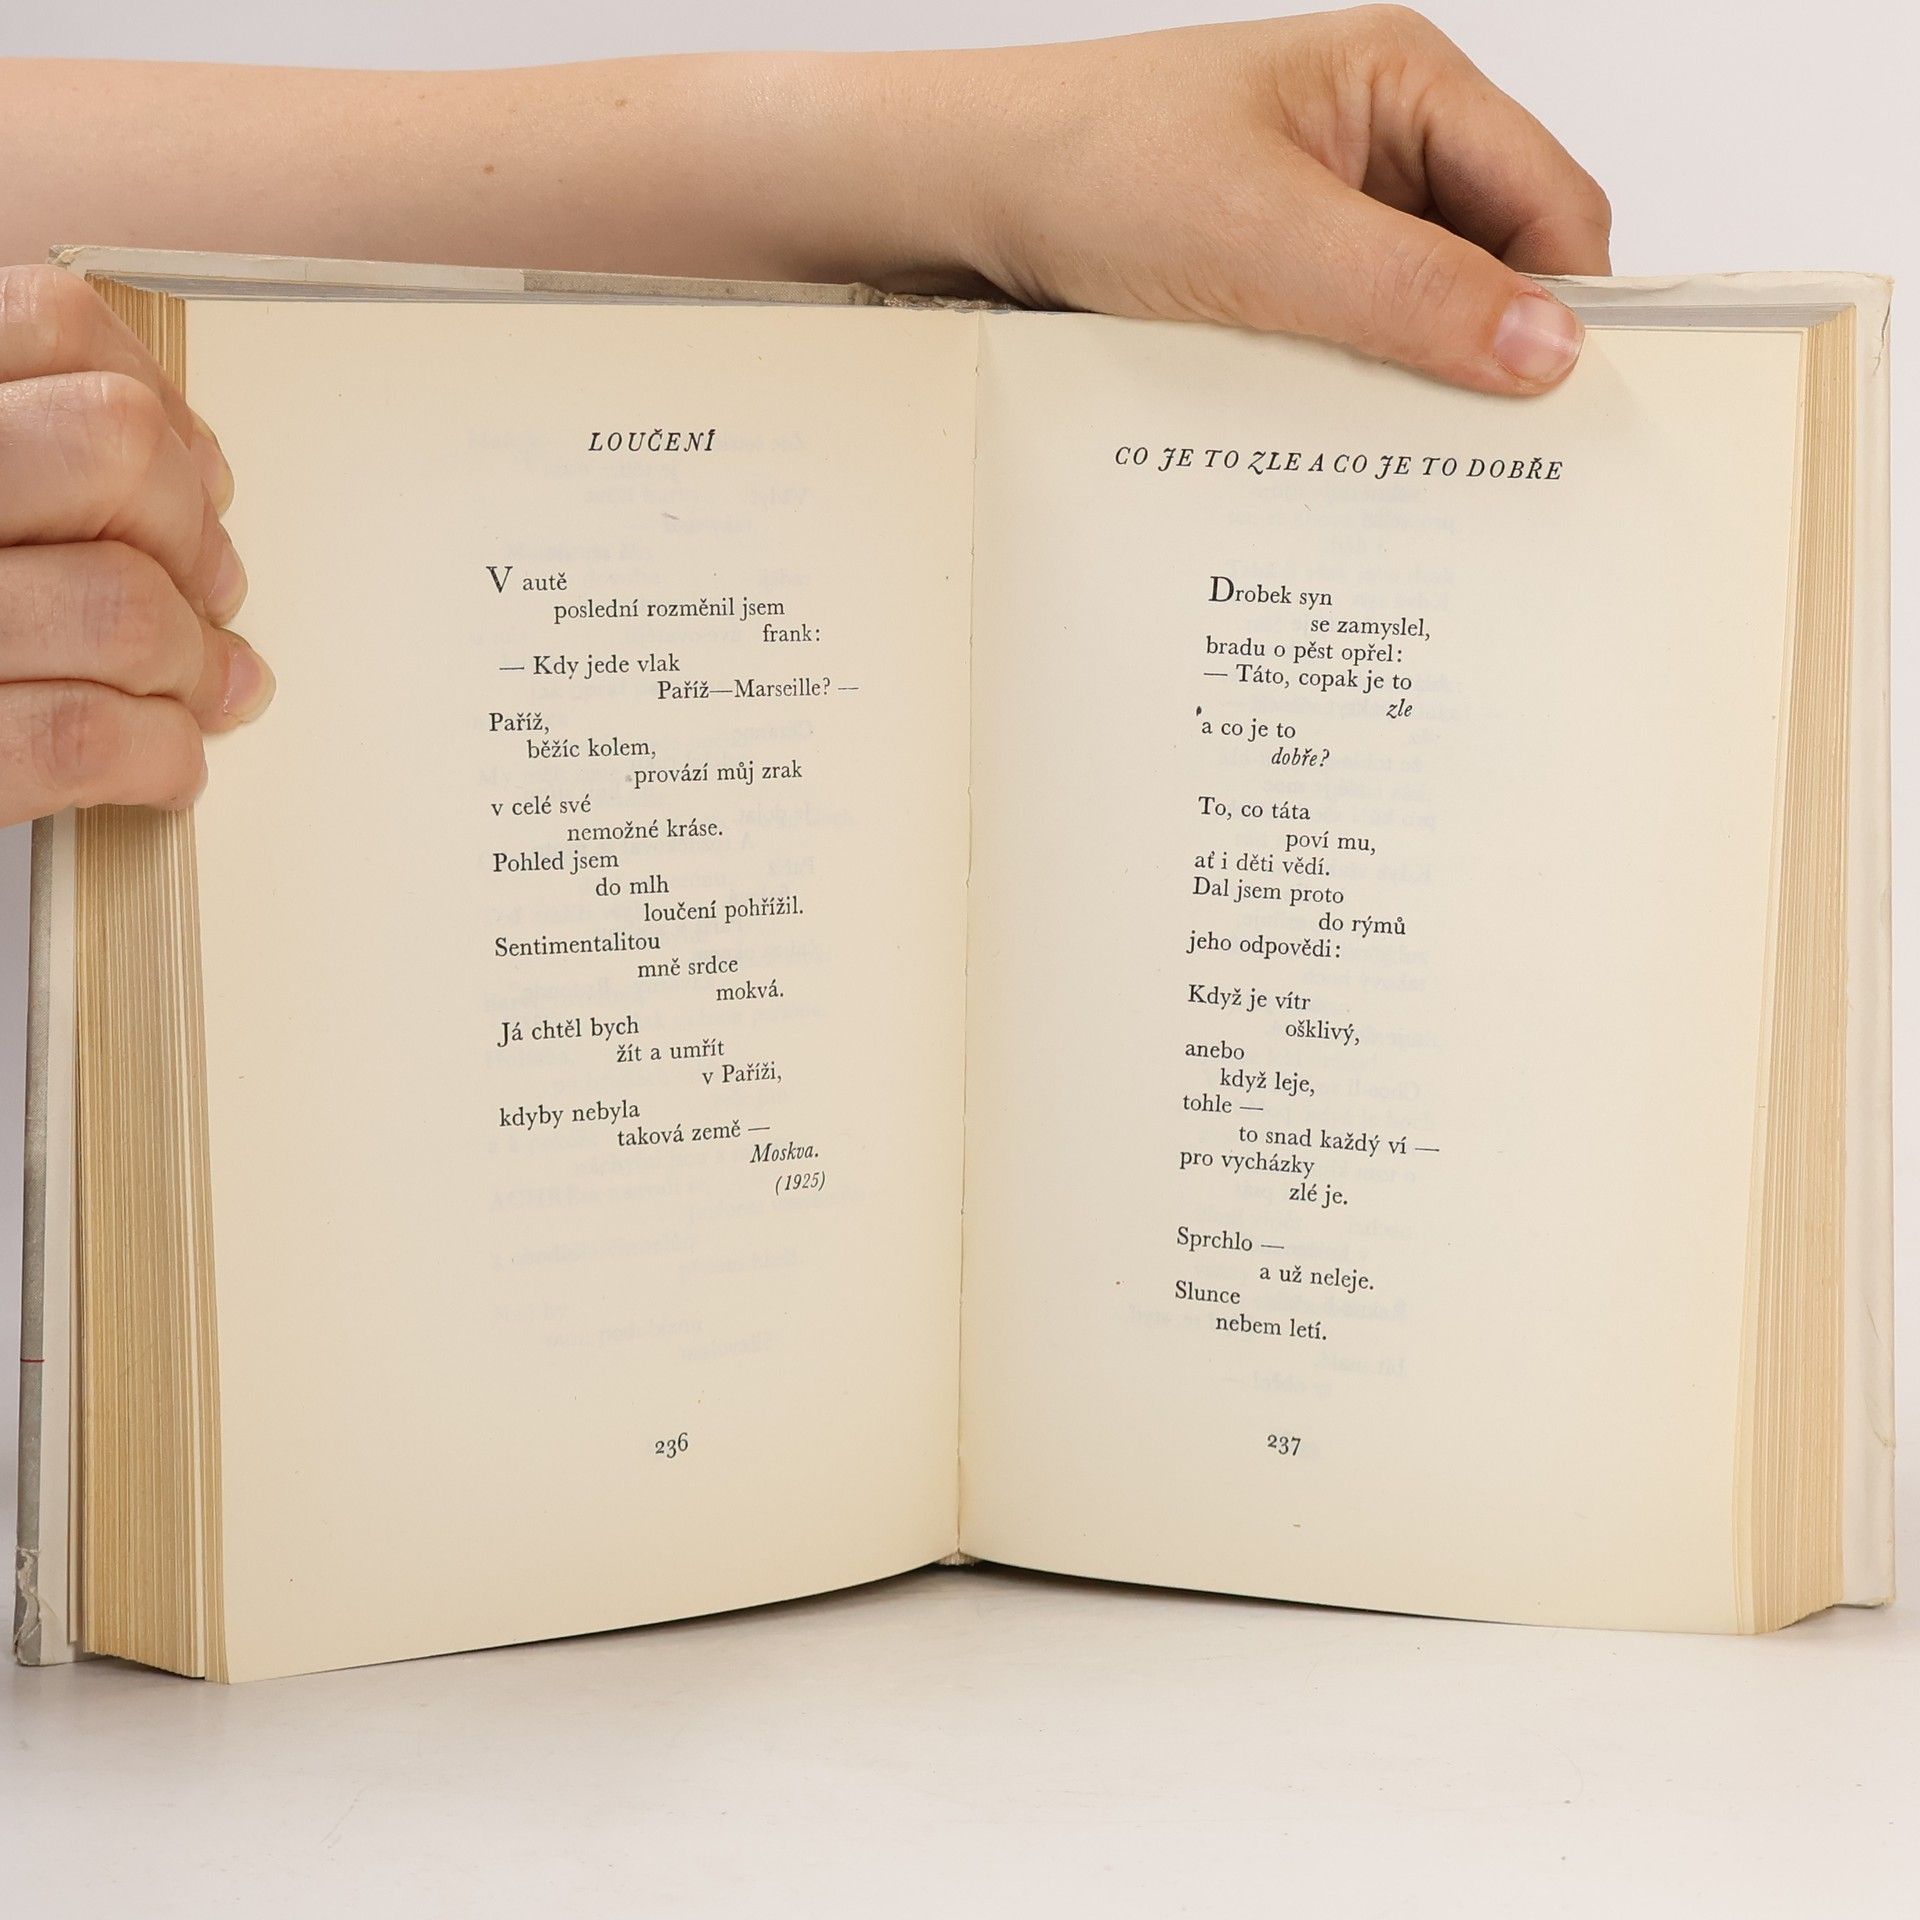 LOUČENÍ
V autě
poslední rozměnil jsem
frank:
— Kdy jede vlak
Paříž—Marseille? —
Paříž,
běžíc kolem,
provází můj zrak
v celé své
nemožné kráse.
Pohled jsem
do mlh
loučení pohřížil.
Sentimentalitou
mně srdce
mokvá.
Já chtěl bych
žít a umřít
v Paříži,
kdyby nebyla
taková země —
Moskva.
(1925)
236
CO JE TO ZLE A CO JE TO DOBŘE
Drobek syn
se zamyslel,
bradu o pěst opřel:
— Táto, copak je to
zle
a co je to
dobře?
To, co táta
poví mu,
ať i děti vědí.
Dal jsem proto
do rýmů
jeho odpovědi:
Když je vítr
ošklivý,
anebo
když leje,
tohle —
to snad každý ví —
pro vycházky
zlé je.
Sprchlo —
a už neleje.
Slunce
nebem letí.
237